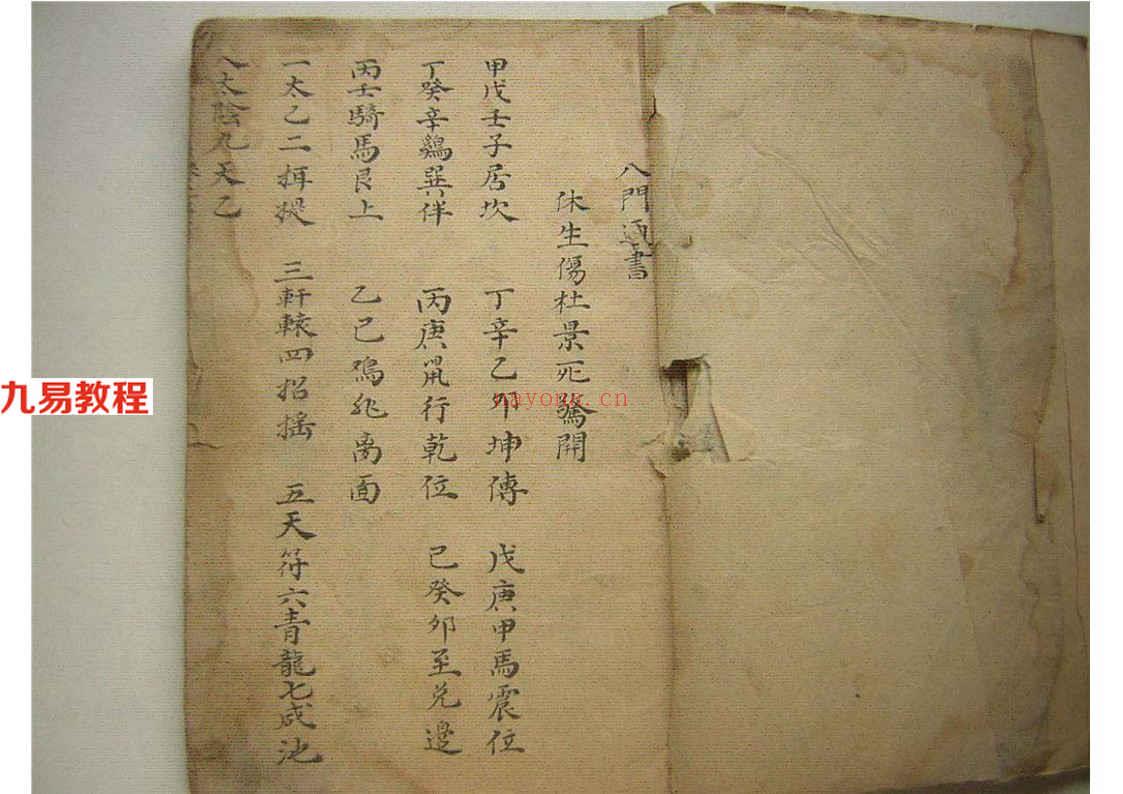 八門通書
休生傷杜景死驚開
甲戊壬子居坎 丁辛乙卯坤傳 戊庚甲馬震位
丁癸辛鷄巽伴 丙庚鼠行乾位 己癸卯至兌邊
丙壬騎馬艮上 乙己鸡飛离面
一太乙二摄提 三軒轅四招摇 五天符六青龍七咸池
八太陰九天乙
九易教程
nayona.cn